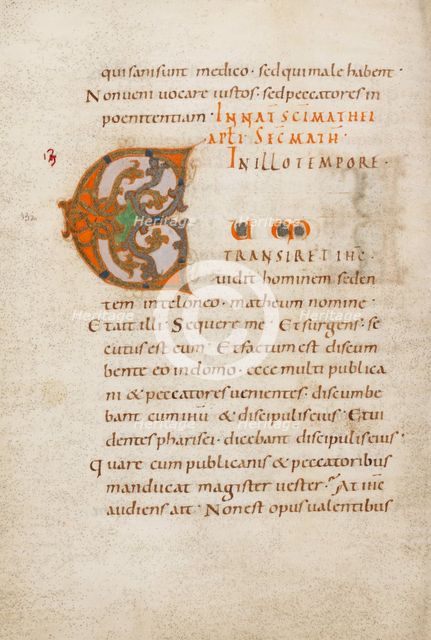 qui sani sunt medico · sed qui male habent ·
Non veni vocare iustos · sed peccatores in
poenitentiam · IN NAT SCI MATHEI
APLI · SEC MATH
IN ILLO TEMPORE ·
C UM
TRANSIRET IHC
uidit hominem seden
tem in teloneo · matheum nomine ·
Et ait illi · Sequere me · Et surgens · se
cutus est eum · Et factum est discum
bente eo in domo · ecce multi publica
ni & peccatores venientes · discumbe
bant cum ihu & discipulis eius · Et vi
dentes pharisei · dicebant discipulis eius ·
Quare cum publicanis & peccatoribus
manducat magister vester · At ihc
audiens ait · Non est opus valentibus
Heritage
Heritage
Heritage
Heritage
Heritage
Heritage